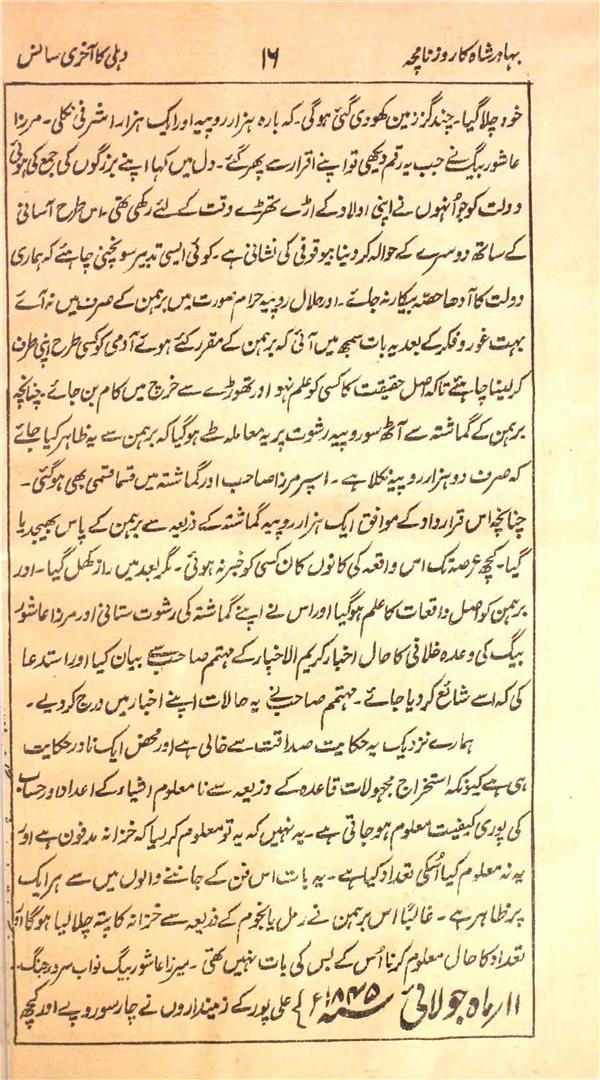 بہادر شاہ کا روزنامچہ ۱۶ دہلی کا آخری سانس
خود چلا گیا۔ چند گز زمین کھودی گئی ہوگی۔ کہ بارہ ہزار روپیہ اور ایک ہزار اشرفی نکلی۔ مرزا
عاشور بیگ نے جب یہ رقم دیکھی تو اپنے اقرار سے پھر گئے۔ دل میں کہا اپنے بزرگوں کی جمع کی ہوئی
دولت کو جو اُنہوں نے اپنی اولاد کے اڑے تھڑے وقت کے لئے رکھی تھی۔ اس طرح آسانی
کے ساتھ دوسرے کے حوالہ کر دینا بیوقوفی کی نشانی ہے۔ کوئی ایسی تدبیر سونچنی چاہئے کہ ہماری
دولت کا آدھا حصّہ بیکار نہ جائے۔ اور حلال روپیہ حرام صورت میں برہمن کے صرف میں نہ آئے
بہت غور و فکر کے بعد یہ بات سمجھ میں آئی کہ برہمن کے مقرر کئے ہوئے آدمی کو کسی طرح اپنی طرف
کر لینا چاہئے تاکہ اصل حقیقت کا کسی کو علم نہو اور تھوڑے سے خرچ میں کام بن جائے۔ چنانچہ
برہمن کے گماشتہ سے آٹھ سو روپیہ رشوت پر یہ معاملہ طے ہوگیا کہ برہمن سے یہ ظاہر کیا جائے
کہ صرف دو ہزار روپیہ نکلا ہے۔ اسپر مرزا صاحب اور گماشتہ میں قسما قسمی بھی ہوگئی۔
چنانچہ اس قرارداد کے موافق ایک ہزار روپیہ گماشتہ کے ذریعہ سے برہمن کے پاس بھیجدیا
گیا۔ کچھ عرصہ تک اس واقعہ کی کانوں کان کسی کو خبر نہ ہوئی۔ مگر بعد میں راز کھل گیا۔ اور
برہمن کو اصل واقعات کا علم ہوگیا اور اس نے اپنے گماشتہ کی رشوت ستانی اور مرزا عاشور
بیگ کی وعدہ خلافی کا حال اخبار کریم الاخبار کے مہتمم صاحب سے بیان کیا اور استدعا
کی کہ اسے شائع کر دیا جائے۔ مہتمم صاحب نے یہ حالات اپنے اخبار میں درج کر دیے۔
ہمارے نزدیک یہ حکایت صداقت سے خالی ہے اور محض ایک نادر حکایت
ہی ہے کیونکہ استخراج مجہولات قاعدہ کے ذریعہ سے نامعلوم اشیاء کے اعداد اور حساب
کی پوری کیفیت معلوم ہو جاتی ہے۔ یہ نہیں کہ یہ تو معلوم کر لیا کہ خزانہ مدفون ہے اور
یہ نہ معلوم کیا اُسکی تعداد کیا ہے۔ یہ بات اس فن کے جاننے والوں میں سے ہر ایک
پر ظاہر ہے۔ غالباً اس برہمن نے رمل یا نجوم کے ذریعہ سے خزانہ کا پتہ چلا لیا ہوگا اور
تعداد کا حال معلوم کرنا اُس کے بس کی بات نہیں تھی۔ میرزا عاشور بیگ نواب سرور جنگ۔
۱۱ ماہ جولائی سنہ ۱۸۴۵ء علی پور کے زمینداروں نے چار سو روپے اور کچھ